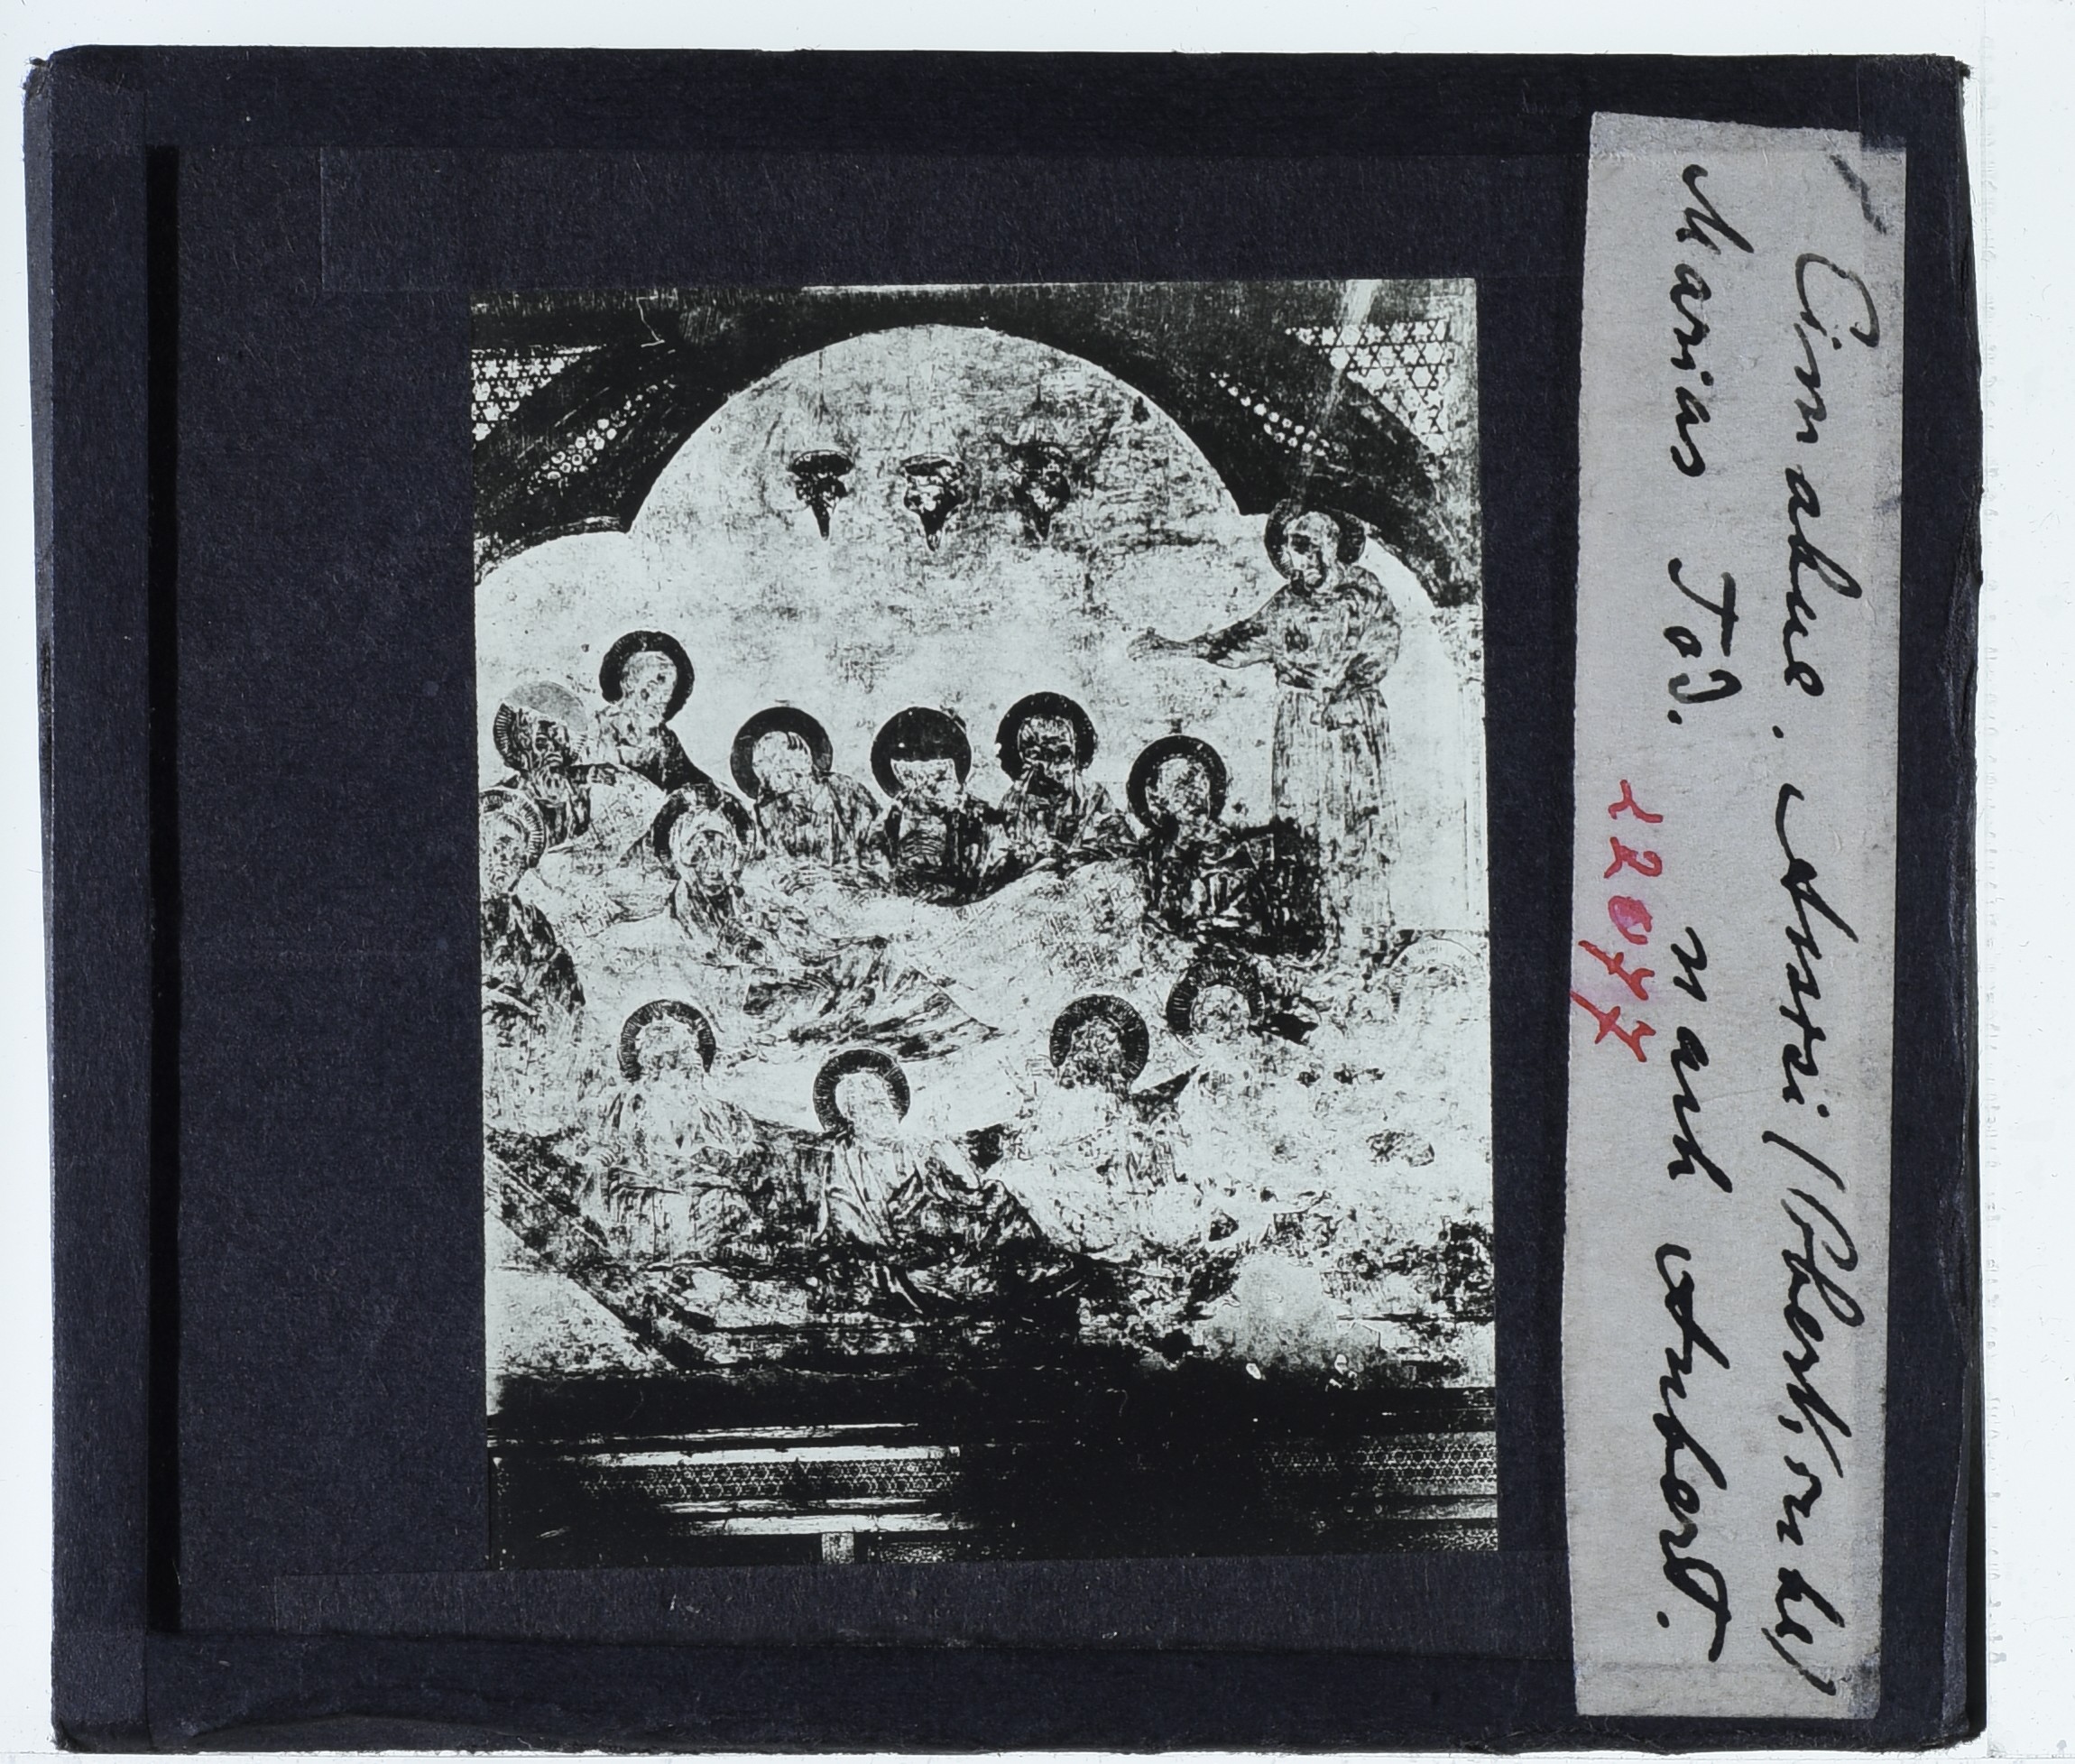 Cimabue. Assisi (Oberkirche)
Marias Tod. nach Aubert.
22077